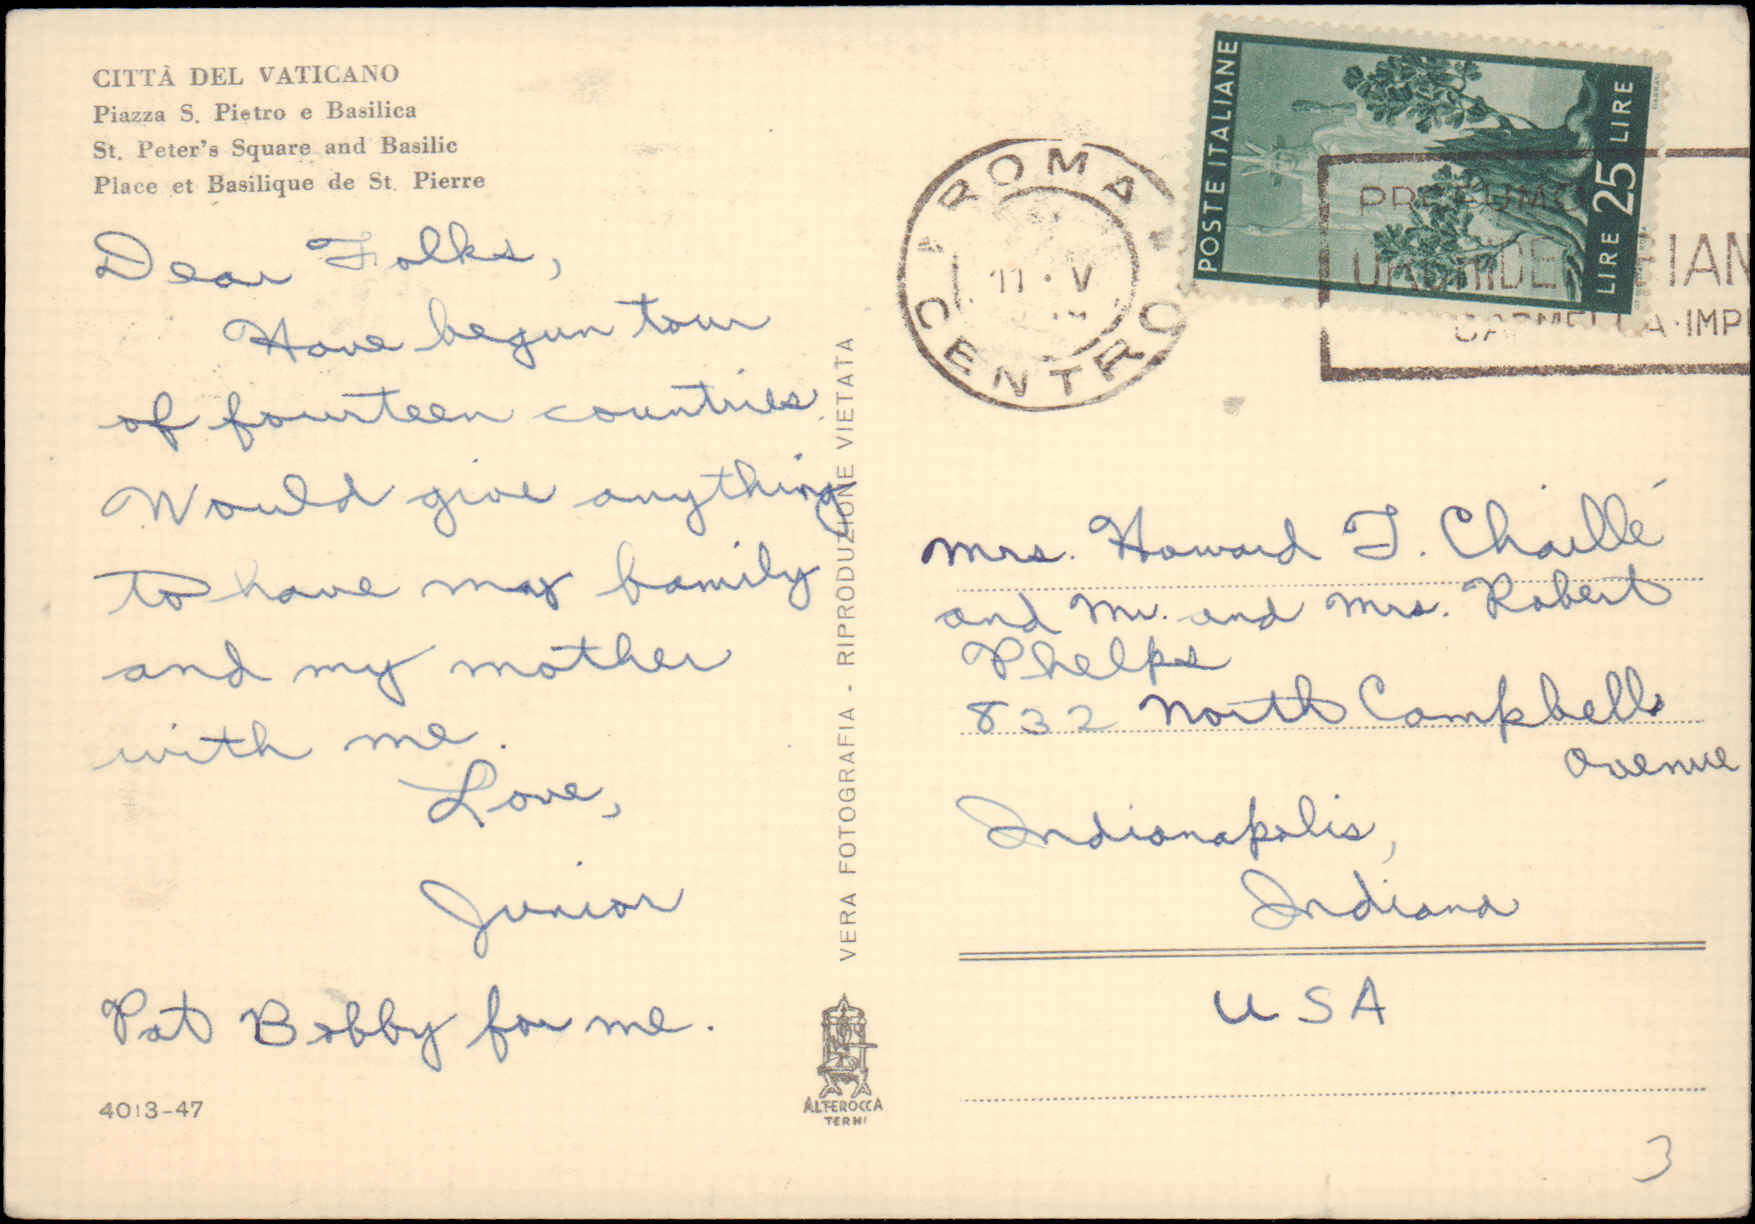 CITTÀ DEL VATICANO
Piazza S. Pietro e Basilica
St. Peter's Square and Basilic
Place et Basilique de St. Pierre
Dear Folks,
Have begun tour
of fourteen countries.
Would give anything
to have my family
and my mother
with me.
Love,
Junior
Pat Bobby for me.
4013-47
VERA FOTOGRAFIA - RIPRODUZIONE VIETATA
ALTEROCCA
TERNI
ROMA
CENTRO
11·V
POSTE ITALIANE
LIRE 25 LIRE
IAN
A·IMP
Mrs. Howard F. Chaillé
and Mr. and Mrs. Robert
Phelps
832 North Campbell
Avenue
Indianapolis,
Indiana
USA
3